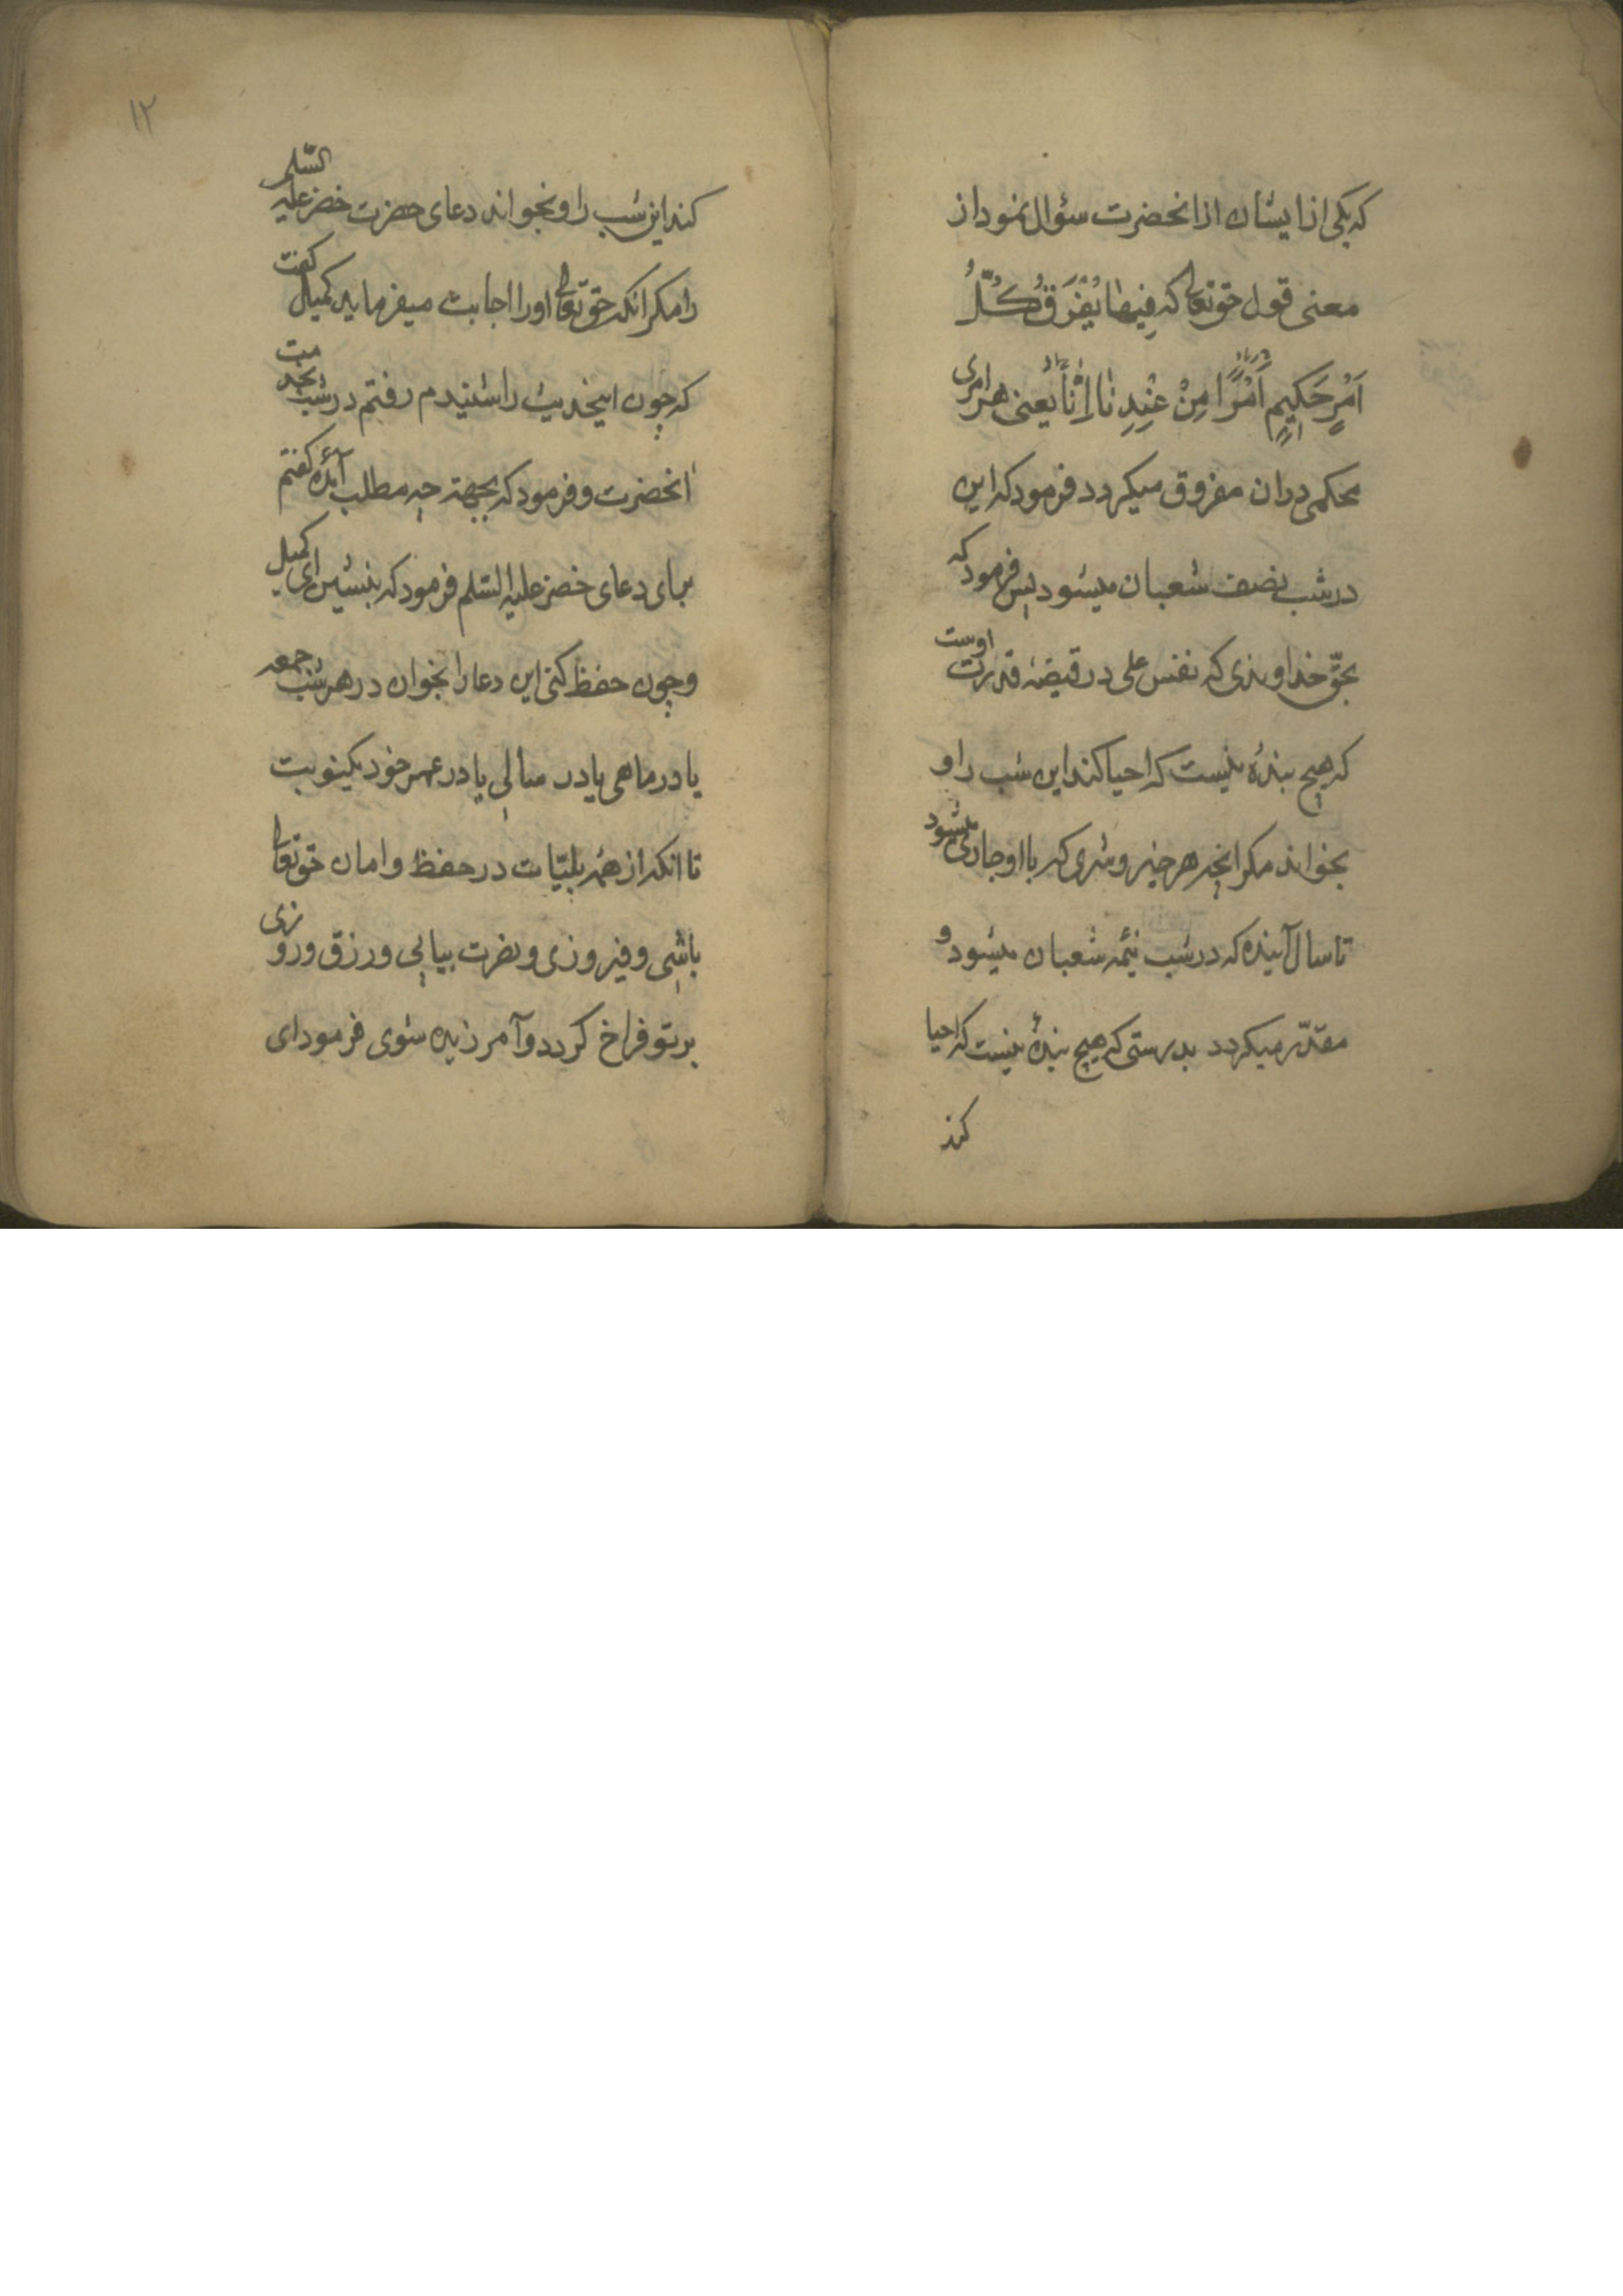 که یکی از ایشان از انحضرت سؤال نمود از
معنی قول حقتعالی که فِیهٰا یُفْرَقُ کُلُّ
اَمْرٍ حَکِیمٍ اَمْرًا مِنْ عِنْدِنٰا یعنی هر امری
محکمی دران مفروق میکردد فرمود که این
در شب نصف شعبان میشود پس فرمود که
بحقّ خداوندی که نفس علی در قبضۀ قدرت اوست
که هیچ بندۀ نیست که احیا کند این شب را و
بخواند مکر انچه هر خیر و شری که با او جاری میشود
تا سال آینده که در شب نیمۀ شعبان میشود و
مقدّر میکردد بدرستی که هیچ بندۀ نیست که احیا
کند
۱۲
کند این شب را و بخواند دعای حضرت خضر علیه السّلم
را مکر انکه حقتعالی او را اجابت میفرماید کمیل کفت
که چون اینحدیث را شنیدم رفتم در شب بخدمت
انحضرت و فرمود که بجهته چه مطلب آمدۀ کفتم
برای دعای خضر علیه السّلم فرمود که بنشین ای کمیل
و چون حفظ کنی این دعا را بخوان در هر شب جمعه
یا در ماهی یا در سالی یا در عمر خود یکنوبت
تا انکه از همۀ بلیّات در حفظ و امان حقتعالی
باشی و فیروزی و نصرت بیابی و رزق و روزی
بر تو فراخ کردد و آمرزیده شوی فرمود ای